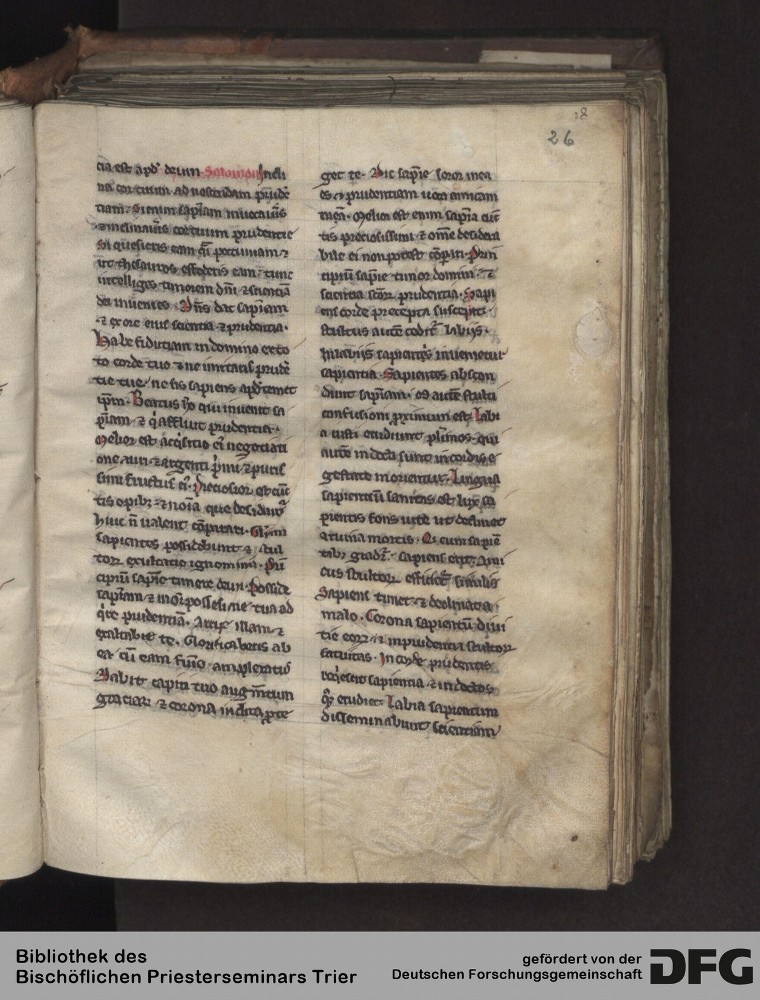 28
26
cia est apd' deum. Salomon Incli
na cor tuum ad noscendam prudē
tiam. Si enim sapīam inuocaūis
& inclinaūis cor tuum prudentie
Si quesieris eam q̄i pecuniam ⁊
ut thesauros effoderis eam. tunc
intelliges timorem dn̄i & scientiā
dei inuenies. Dn̄s dat sapīam
& ex ore eius scientia & prudentia.
Habe fiduciam in domino ex to
to corde tuo & ne innitaris prudē
tie tue. ne sis sapiens apd' temet
ip̄m. Beatus h̊o qui inuenit sa
pīam & q̇ affluit prudentia.
Melior est acq̇sitio ei' negociati
one auri & argenti ṗmi & puris
simi fructus ei'. Preciosior est cūc
tis opib; & om̄ia que desiderāt'
huic n̄ ualent cōparari. Gl̄iam
sapientes possidebunt & stul
torꝝ exaltatio ignominia. Prī
cipiū sapīe timere deum. Posside
sapīam & in om̄i possessiōe tua ad
q̇re prudentiā. Arripe illam ⁊
exaltabit te. Glorificaberis ab
ea cū eam fuīo amplexatus
Dabit capiti tuo augm̄tum
graciarꝝ & corona inclita ꝓte
get te. Dic sapīe soror mea
es & prudentiam uoca amicam
tuā. Melior est enim sapīa cūc
tis preciosissimis & om̄e desidera
bile ei non potest cōpari. Prin
cipium sapīe timor domini &
scientia scōrꝝ prudentia. Sapi
ens corde precepta suscipit.
stultus autē cedit' labijs.
In labijs sapientis inuenietur
sapientia. Sapientes abscon
dunt sapīam. os autē stulti
confusioni proximum est. Labi
a iusti erudiunt plīmos. qui
autē indocti sunt in cordis e
gestate morientur. Lingua
sapientium sanitas est lex sa
pientis fons uite ut declinet
a ruina mortis. Qi cum sapiē
tib; gradit' sapiens erit. Ami
cus stultorꝝ efficiet' similis
Sapiens timet & declinat a
malo. Corona sapientū diui
tie eorꝝ & inprudentia stultorꝝ
fatuitas. In corde prudentis
req̇escit sapientia & indoctos
q̊sꝫ erudiet. Labia sapientium
disseminabunt scientiam
Bibliothek des
Bischöflichen Priesterseminars Trier
gefördert von der
Deutschen Forschungsgemeinschaft
DFG